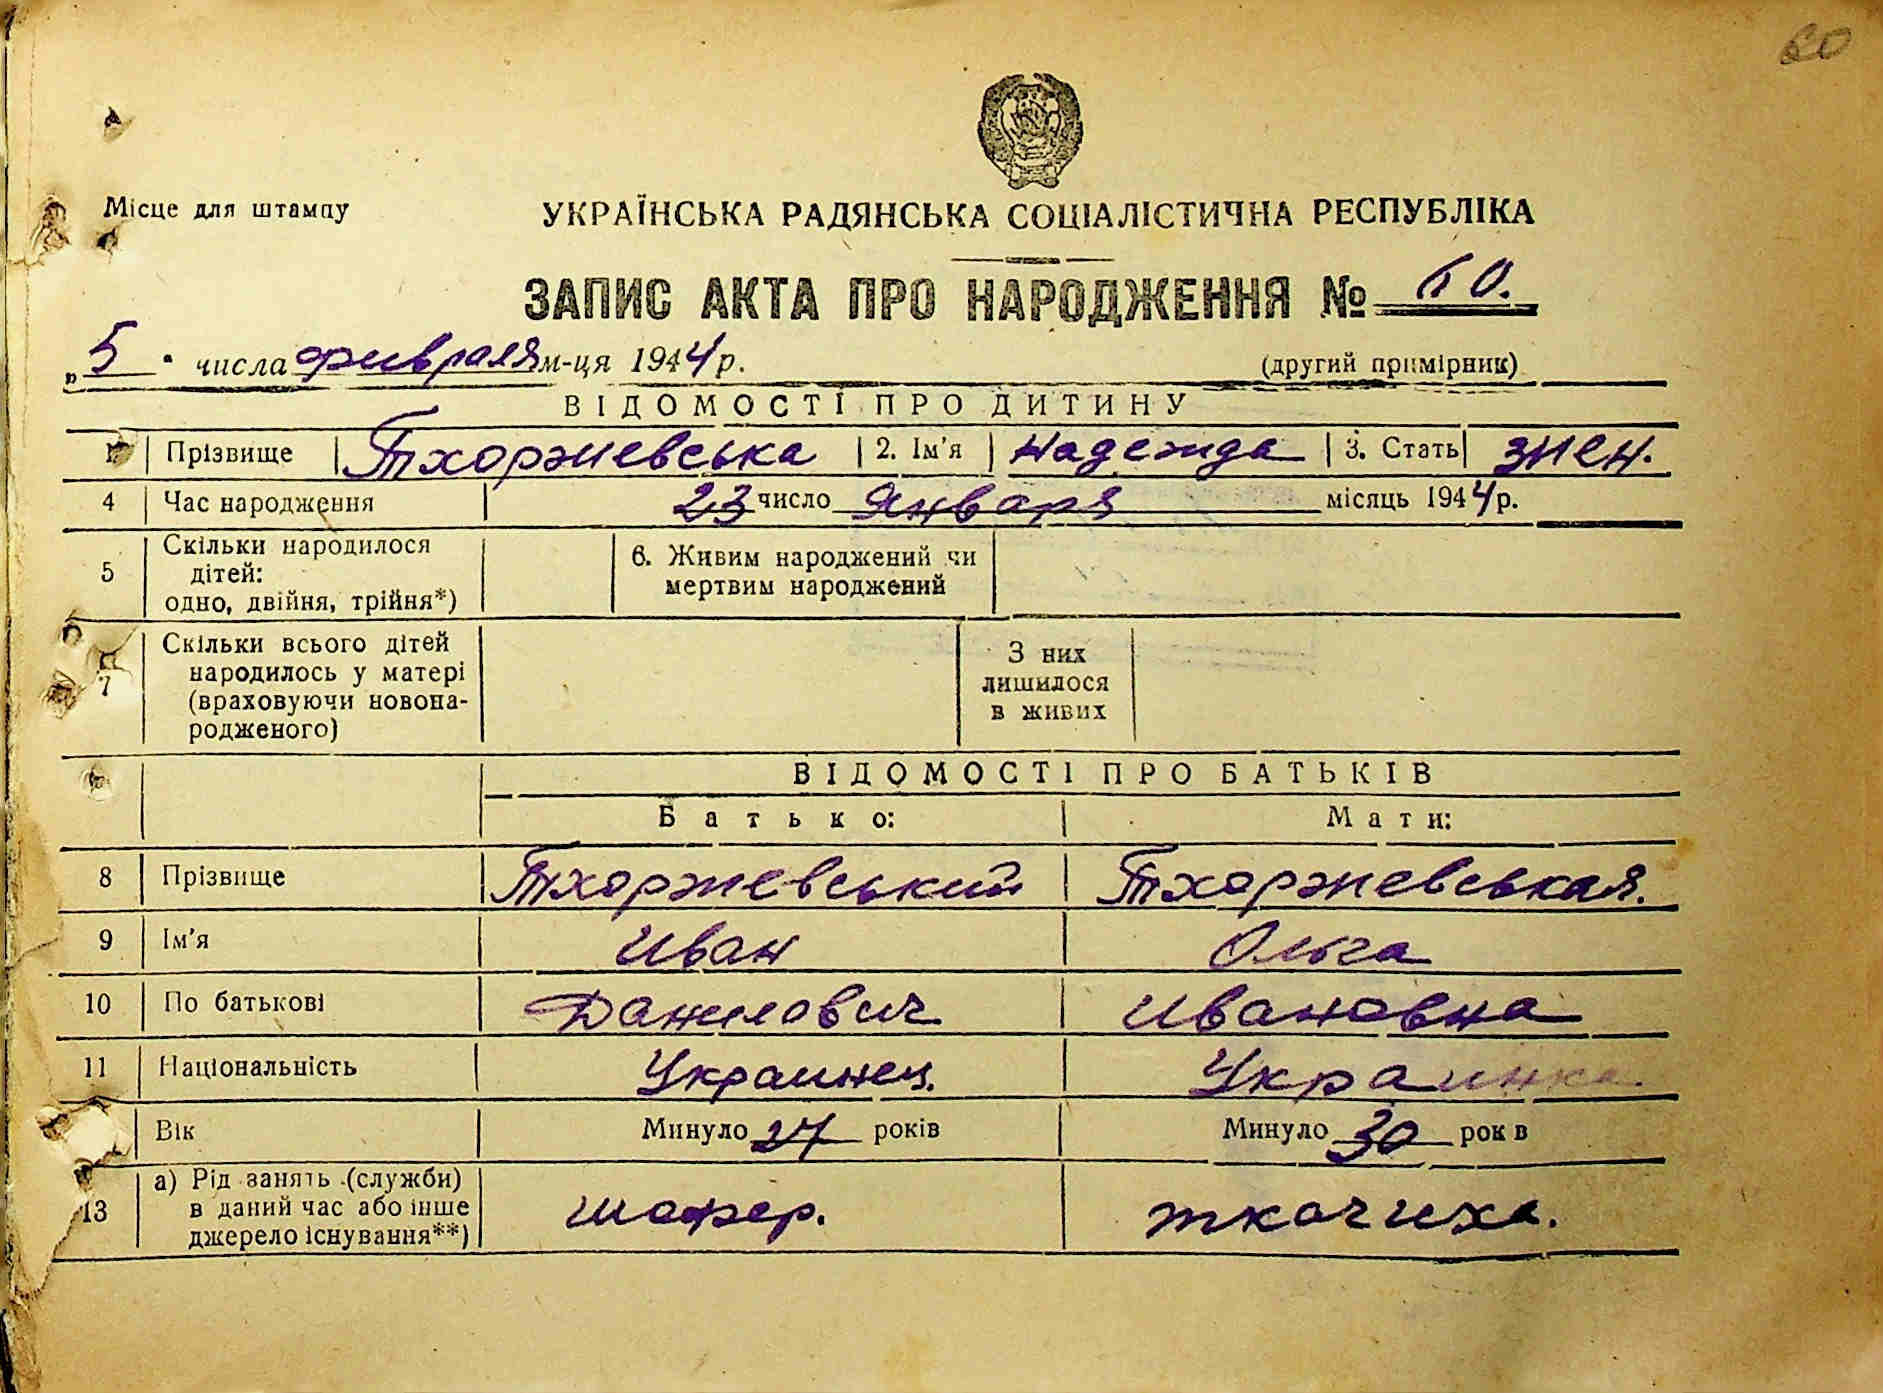 60
Місце для штампу
УКРАЇНСЬКА РАДЯНСЬКА СОЦІАЛІСТИЧНА РЕСПУБЛІКА
ЗАПИС АКТА ПРО НАРОДЖЕННЯ № 60.
„5" числа февраля м-ця 1944 р. (другий примірник)
ВІДОМОСТІ ПРО ДИТИНУ
1 Прізвище Тхоржевська 2. Ім'я Надежда 3. Стать жен.
4 Час народження 23 число Января місяць 1944 р.
5 Скільки народилося дітей: одно, двійня, трійня*) 6. Живим народжений чи мертвим народжений
7 Скільки всього дітей народилось у матері (враховуючи новонародженого) З них лишилося в живих
ВІДОМОСТІ ПРО БАТЬКІВ
Батько: Мати:
8 Прізвище Тхоржевський Тхоржевськая.
9 Ім'я Иван Ольга
10 По батькові Данилович Ивановна
11 Національність Украинец. Украинка.
Вік Минуло 27 років Минуло 30 рок в
13 а) Рід занять (служби) в даний час або інше джерело існування**) шофер. ткачиха.